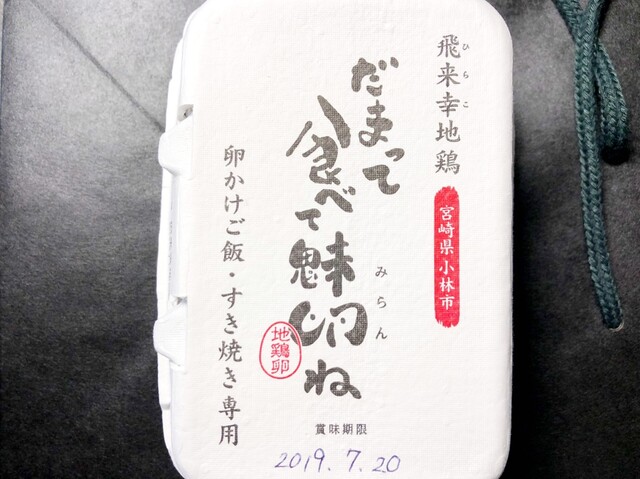 飛来幸地鶏
ひらこ
宮崎県小林市
だまって
食べて魅卵ね
みらん
地鶏卵
卵かけご飯・すき焼き専用
賞味期限
2019.7.20